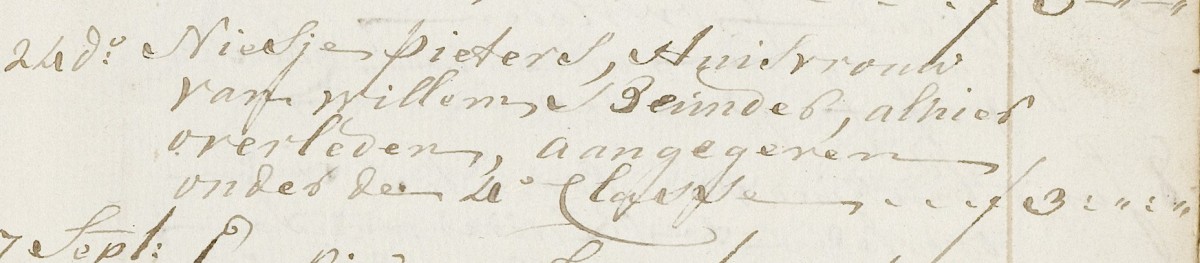 ƒ 3 " "
24 do: Niesje Pieters, Huisvrouw
van Willem Beindes, alhier
overleden, aangegeven
onder de 4e Classe . . . ƒ 3:":"
7 Sept: